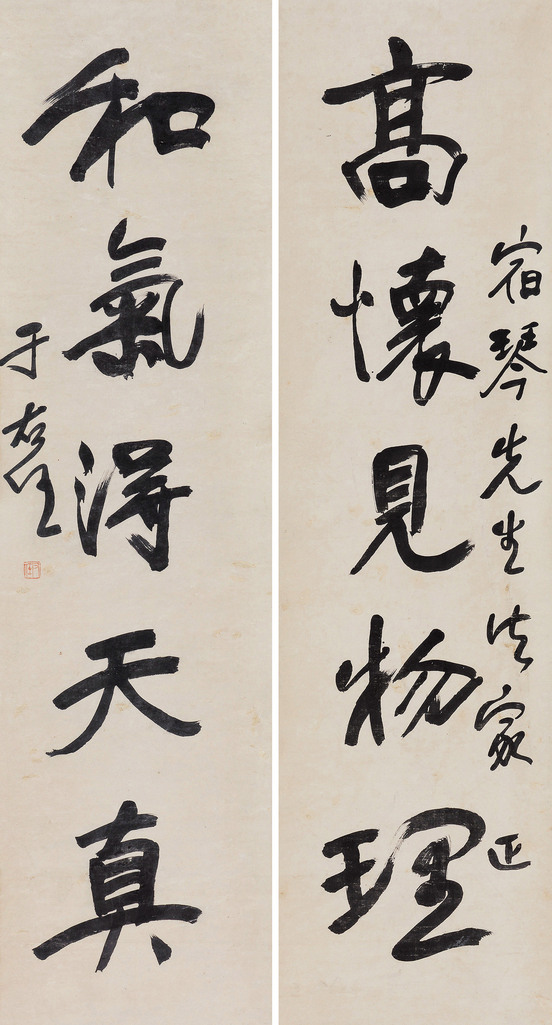 宿琴先生法家正
高懷見物理
和氣得天真
于右任